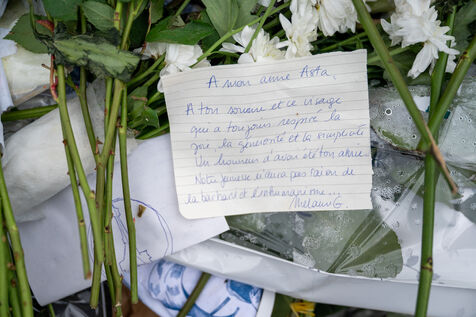 A mon amie Asta,
A ton sourire et ce visage
qui a toujours respiré la
joie, la générosité et la simplicité
Un honneur d'avoir été ton amie.
Notre jeunesse n'aura pas raison de
la barbarie et l'obscurantisme...
Melanie G.